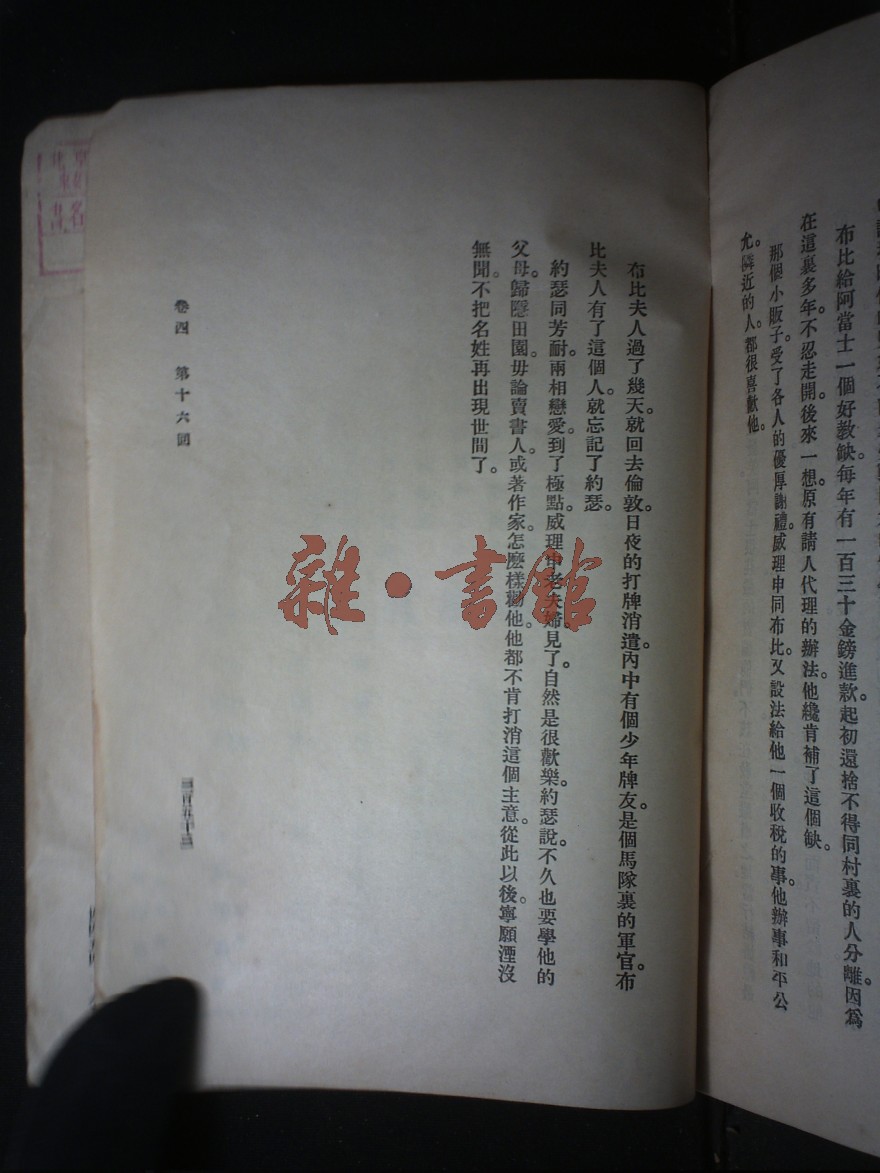 布比給阿當士一個好敎缺。每年有一百三十金鎊進款。起初還捨不得同村裏的人分離。因爲
在這裏多年。不忍走開。後來一想。原有請人代理的辦法。他纔肯補了這個缺。
那個小販子。受了各人的優厚謝禮。威理申同布比。又設法給他一個收稅的事。他辦事和平公
允。隣近的人。都很喜歡他。
布比夫人過了幾天。就回去倫敦。日夜的打牌消遣。內中有個少年牌友。是個馬隊裏的軍官。布
比夫人有了這個人。就忘記了約瑟。
約瑟同芳耐。兩相戀愛。到了極點。威理申老夫婦見了。自然是很歡樂。約瑟說。不久也要學他的
父母。歸隱田園。毋論賣書人。或著作家。怎麽樣勸他。他都不肯打消這個主意。從此以後。寧願湮沒
無聞。不把名姓再出現世間了。
卷四　第十六回
三百五十三
雜·書館